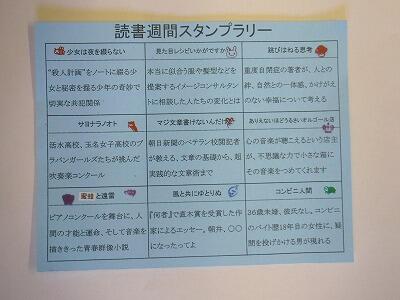 読書週間スタンプラリー
少女は夜を綴らない
見た目レシピいかがですか
跳びはねる思考
"殺人計画"をノートに綴る少
女と秘密を握る少年の奇妙で
切実な共犯関係
本当に似合う服や髪型などを
提案するイメージコンサルタン
トに相談した人たちの変化とは
重度自閉症の著者が、人との
絆、自然との一体感、かけがえ
のない幸福について考える
サヨナラノオト
マジ文章書けないんだけど
ありえないほどうるさいオルゴール店
活水高校、玉名女子高校のブ
ラバンガールズたちが挑んだ
吹奏楽コンクール
朝日新聞のベテラン校閲記者
が教える、文章の基礎から、超
実践的な文章術まで
心の音楽が聴こえるという店主
が、不思議な力で小さな箱に
その音楽をつめてくれます
蜜蜂と遠雷
風と共にゆとりぬ
コンビニ人間
ピアノコンクールを舞台に、人
間の才能と運命、そして音楽を
描ききった青春群像小説
『何者』で直木賞を受賞した作
家によるエッセー。朝井、○○
になったってよ
36歳未婚、彼氏なし。コンビニ
のバイト歴18年目の女性に、疑
問を投げかける男が現れる